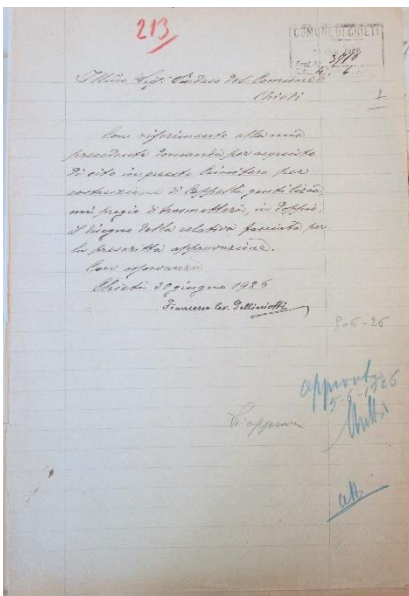 213
COMUNE DI CHIETI
3978
6
Ill.mo Sig. Sindaco del Comune di
Chieti
1
Con riferimento alla mia
precedente domanda per acquisto
di sito in questo Cimitero per
costruzione di Cappella gentilizia
mi pregio di trasmetterLe, in doppio,
il disegno della relativa facciata per
la prescritta approvazione.
Con osservanza
Chieti giugno 1926
Francesco Cav.
5-6-26
approvato
5-6-1926